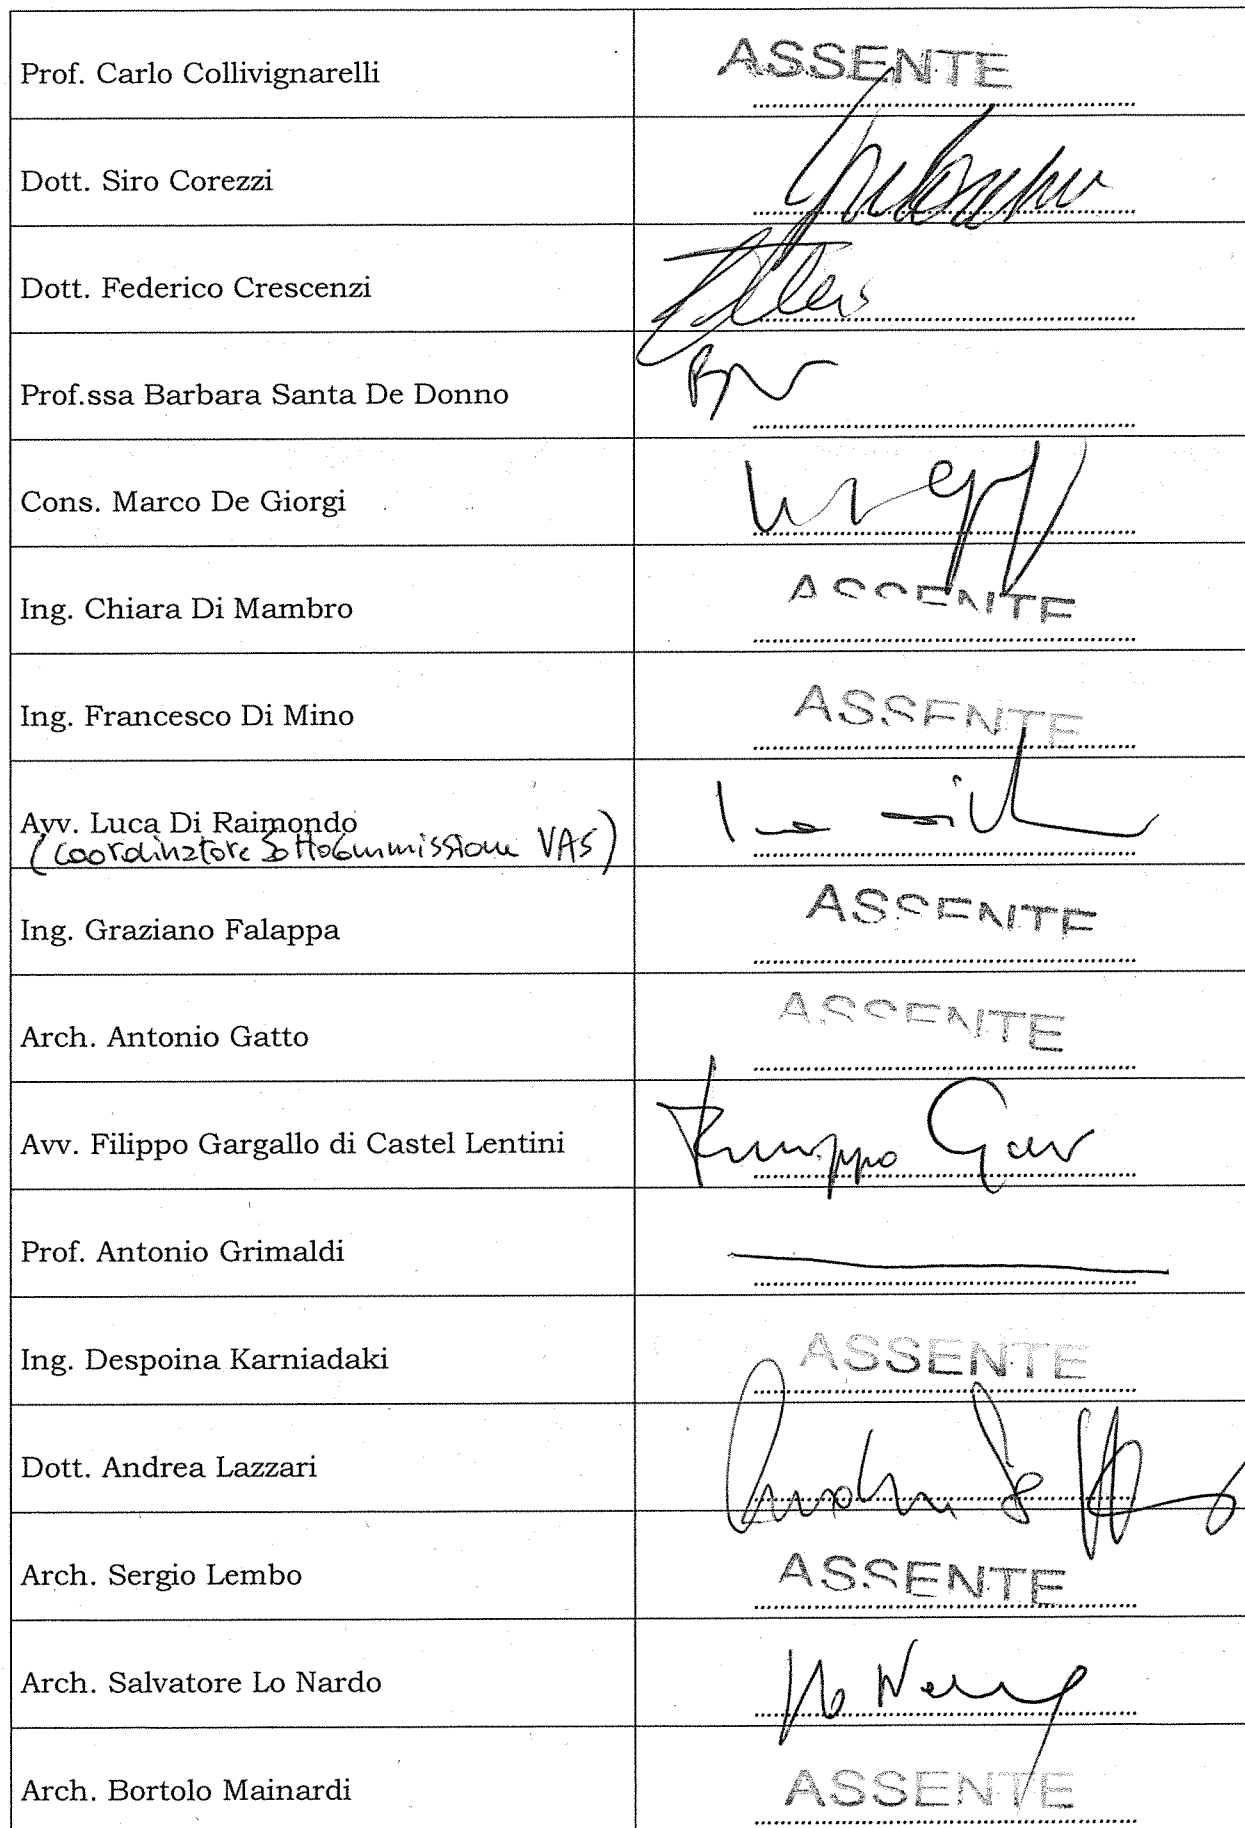 Prof. Carlo Collivignarelli ASSENTE
Dott. Siro Corezzi
Dott. Federico Crescenzi
Prof.ssa Barbara Santa De Donno
Cons. Marco De Giorgi
Ing. Chiara Di Mambro ASSENTE
Ing. Francesco Di Mino ASSENTE
Avv. Luca Di Raimondo
(Coordinatore Sottocommissione VAS)
Ing. Graziano Falappa ASSENTE
Arch. Antonio Gatto ASSENTE
Avv. Filippo Gargallo di Castel Lentini
Prof. Antonio Grimaldi
Ing. Despoina Karniadaki ASSENTE
Dott. Andrea Lazzari
Arch. Sergio Lembo ASSENTE
Arch. Salvatore Lo Nardo
Arch. Bortolo Mainardi ASSENTE